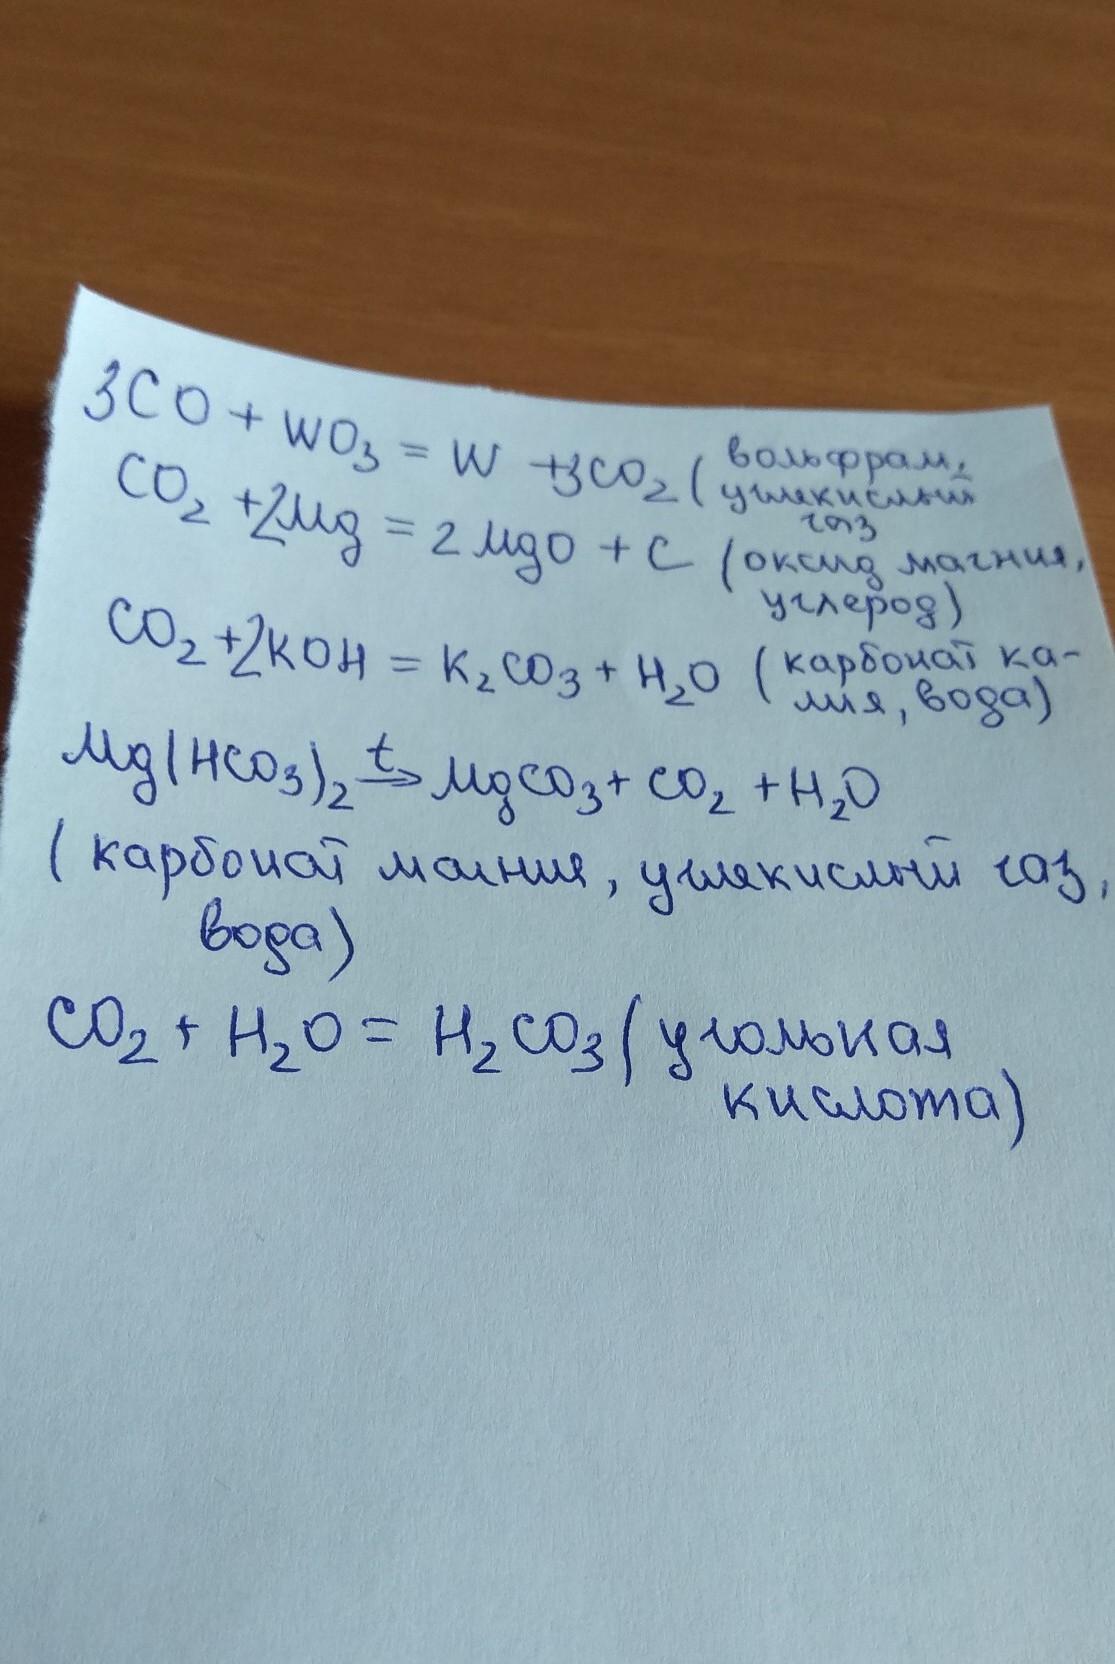 3CO + WO₃ = W + 3CO₂ (вольфрам, углекислый газ
CO₂ + 2Mg = 2MgO + C (оксид магния, углерод)
CO₂ + 2KOH = K₂CO₃ + H₂O (карбонат ка-
лия, вода)
Mg(HCO₃)₂ t→ MgCO₃ + CO₂ + H₂O
(карбонат магния, углекислый газ,
вода)
CO₂ + H₂O = H₂CO₃ (угольная
кислота)